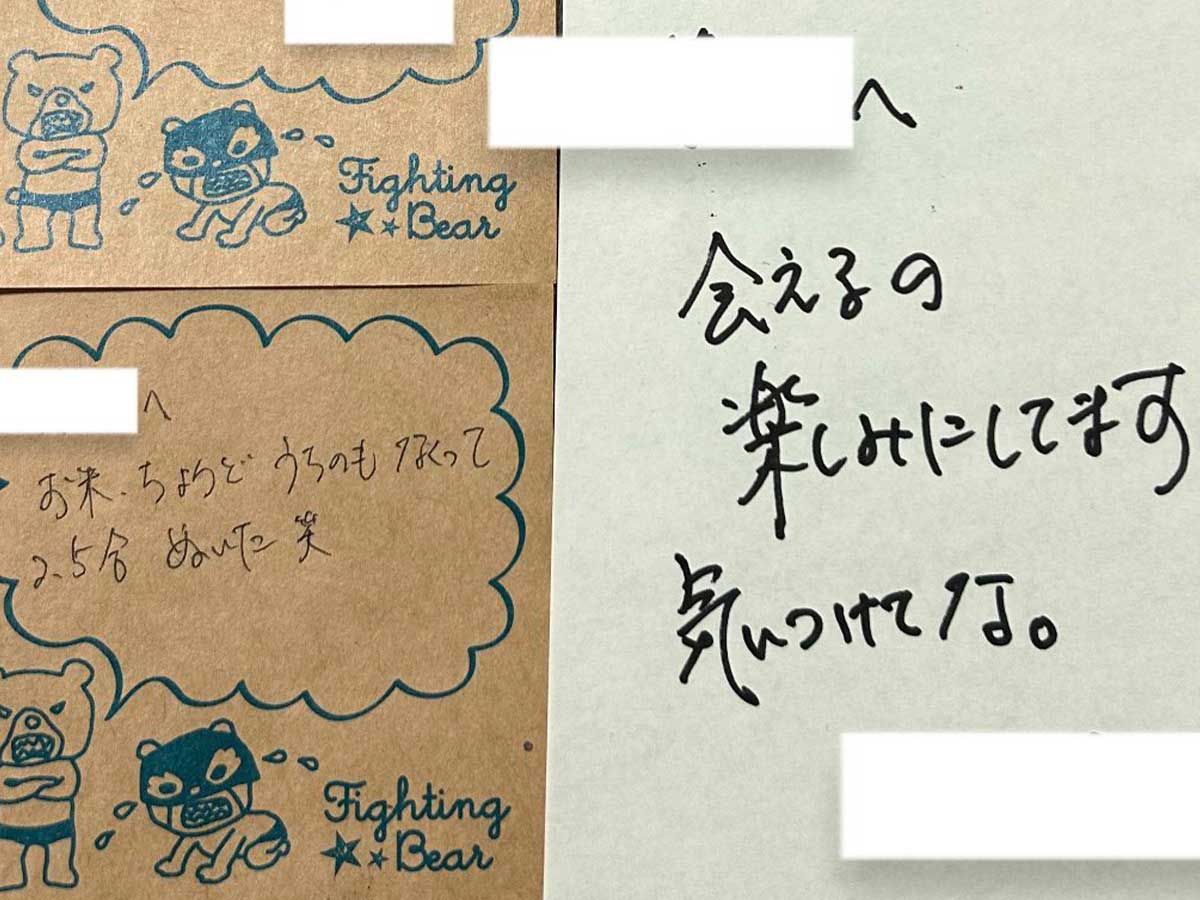 Fighting
Bear
へ
お米、ちょうどうちのもなくって
2.5合 ぬいた 笑
Fighting
Bear
へ
会えるの
楽しみにしてます
気いつけてな。